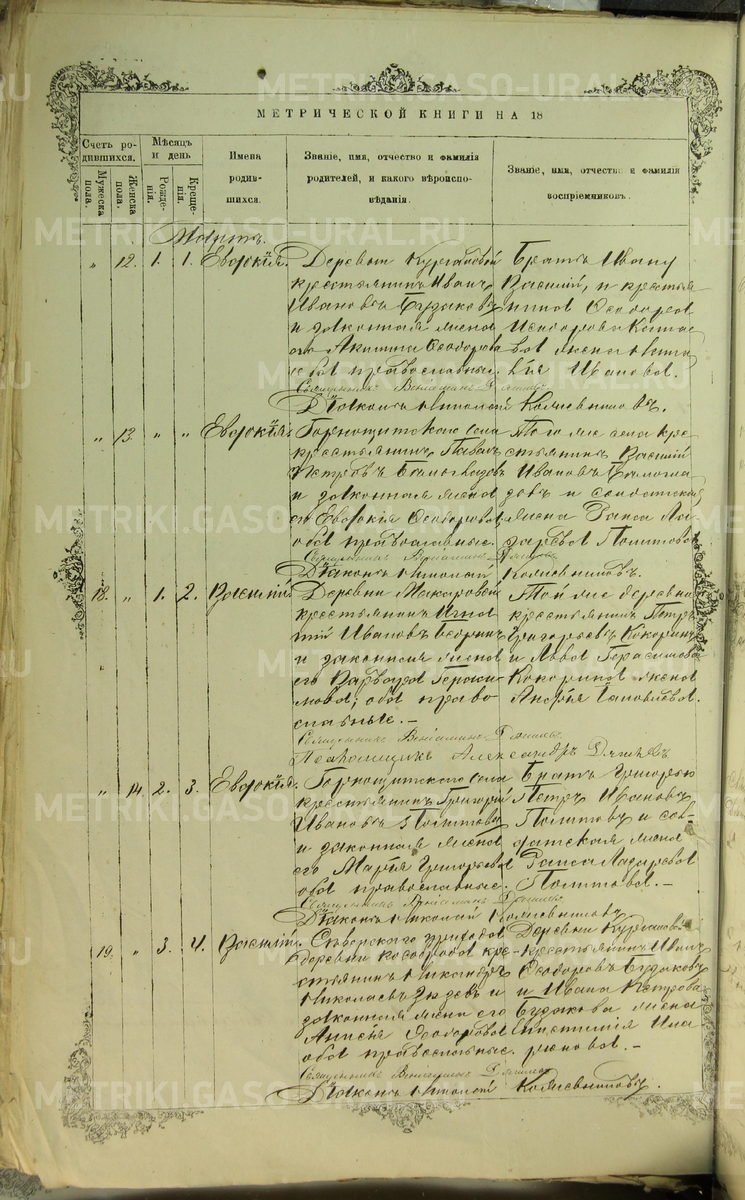 МЕТРИЧЕСКОЙ КНИГИ НА 18
Счетъ родившихся.
Мужеска пола.
Женска пола.
Мѣсяцъ и день
Рожденія.
Крещенія.
Имена родившихся.
Званіе, имя, отчество и фамилія родителей, и какого вѣроисповѣданія.
Званіе, имя, отчество и фамилія воспріемниковъ.
Мартъ.
" 12. 1. 1. Евдокія.
Деревни Кургановой
крестьянинъ Иванъ
Ивановъ Будаковъ
и законная жена
его Акилина Ѳеодорова
оба православные.
Братъ Ивану
Василій, и крестья
нина Ѳеодора
Исидорова
жена
Иванова.
Священникъ Веніаминъ
Діаконъ Николай Кожевниковъ.
" 13. " " Евдокія.
Горнощитскаго села
крестьянинъ Павелъ
Петровъ
и законная жена
его Евдокія Ѳеодорова,
оба православные.
Того же села кре
стьянинъ Василій
Ивановъ
и солдатская
жена Раиса Ла
зарева Политова
Священникъ Веніаминъ
Діаконъ Николай Кожевниковъ.
18. " 1. 2. Василій.
Деревни Макаровой
крестьянинъ Игна
тій Ивановъ
и законная жена
его Варвара Гераси
мова; оба право
славные. —
Той же деревни
крестьянинъ Петръ
Григорьевъ Кокоринъ
и Савва Герасимова
Кокорина жена
Священникъ Веніаминъ
Псаломщикъ Александръ
" 14. 2. 3. Евдокія.
Горнощитскаго села
крестьянинъ Григорій
Ивановъ Политовъ
и законная жена
его Марія Григорьева
оба православные.
Братъ Григорью
Петръ Ивановъ
Политовъ и сол-
датская жена
Раиса Лазарева
Политова. —
Священникъ Веніаминъ
Діаконъ Николай Кожевниковъ
19. " 3. 4. Василій.
Сѣверского прихода
деревни Кособрода кре-
стьянинъ Никандръ
Николаевъ Зюзевъ и
законная жена его
Анисія Ѳеодорова
оба православные.
Деревни Кургановой
крестьянинъ Иванъ
Ѳеодоровъ Будаковъ
и Ивана Петрова
Будакова жена
Священникъ Веніаминъ
Діаконъ Николай Кожевниковъ.
METRIKI.GASO-URAL.RU